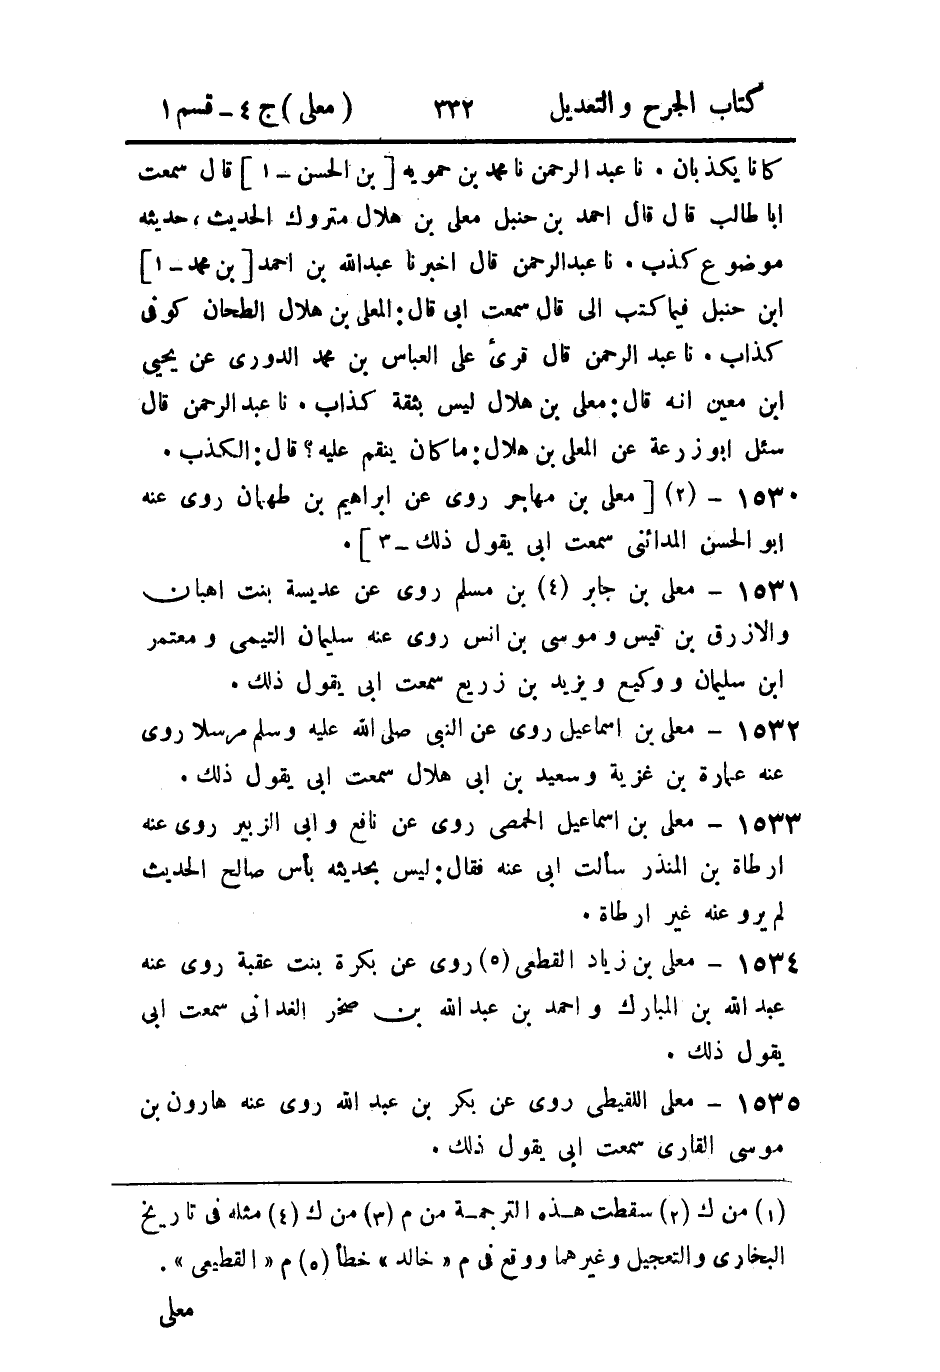 كتاب الجرح والتعديل ٣٣٢ (معلى) ج ٤ - قسم ١
كانا يكذبان . نا عبد الرحمن نا محمد بن حمويه [بن الحسن - ١] قال سمعت
ابا طالب قال قال احمد بن حنبل معلى بن هلال متروك الحديث، حديثه
موضوع كذب . نا عبدالرحمن قال اخبرنا عبدالله بن احمد [بن محمد - ١]
ابن حنبل فيما كتب الى قال سمعت ابى قال: المعلى بن هلال الطحان كوفى
كذاب . نا عبد الرحمن قال قرئ على العباس بن محمد الدورى عن يحيى
ابن معين انه قال: معلى بن هلال ليس بثقة كذاب . نا عبد الرحمن قال
سئل ابو زرعة عن المعلى بن هلال: ما كان ينقم عليه؟ قال: الكذب .
١٥٣٠ - (٢) [معلى بن مهاجر روى عن ابراهيم بن طهمان روى عنه
ابو الحسن المدائنى سمعت ابى يقول ذلك - ٣] .
١٥٣١ - معلى بن جابر (٤) بن مسلم روى عن عديسة بنت اهبان
والازرق بن قيس وموسى بن انس روى عنه سليمان التيمى ومعتمر
ابن سليمان ووكيع ويزيد بن زريع سمعت ابى يقول ذلك .
١٥٣٢ - معلى بن اسماعيل روى عن النبى صلى الله عليه وسلم مرسلا روى
عنه عمارة بن غزية وسعيد بن ابى هلال سمعت ابى يقول ذلك .
١٥٣٣ - معلى بن اسماعيل الحمصى روى عن نافع وابى الزبير روى عنه
ارطاة بن المنذر سألت ابى عنه فقال: ليس بحديثه بأس صالح الحديث
لم يرو عنه غير ارطاة .
١٥٣٤ - معلى بن زياد القطعى (٥) روى عن بكرة بنت عقبة روى عنه
عبد الله بن المبارك واحمد بن عبد الله بن صخر الغدانى سمعت ابى
يقول ذلك .
١٥٣٥ - معلى اللقيطى روى عن بكر بن عبد الله روى عنه هارون بن
موسى القارى سمعت ابى يقول ذلك .
(١) من ك (٢) سقطت هذه الترجمة من م (٣) من ك (٤) مثله فى تاريخ
البخارى والتعجيل وغيرهما ووقع فى م « خالد » خطأ (٥) م « القطيعى » .
معلى